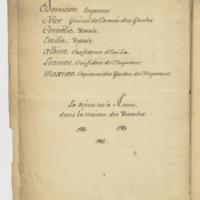 Domitien, Empereur
Celer, Général de l'armée des Gaules.
Cornélie, Vestale.
Emilie, Vestale.
Albine, Confidente d'Emilie.
Licinien, Confident de l'Empereur.
Maxime, Capitaine des Gardes de l'Empereur.
La scène est à Rome,
dans la maison des Vestales.